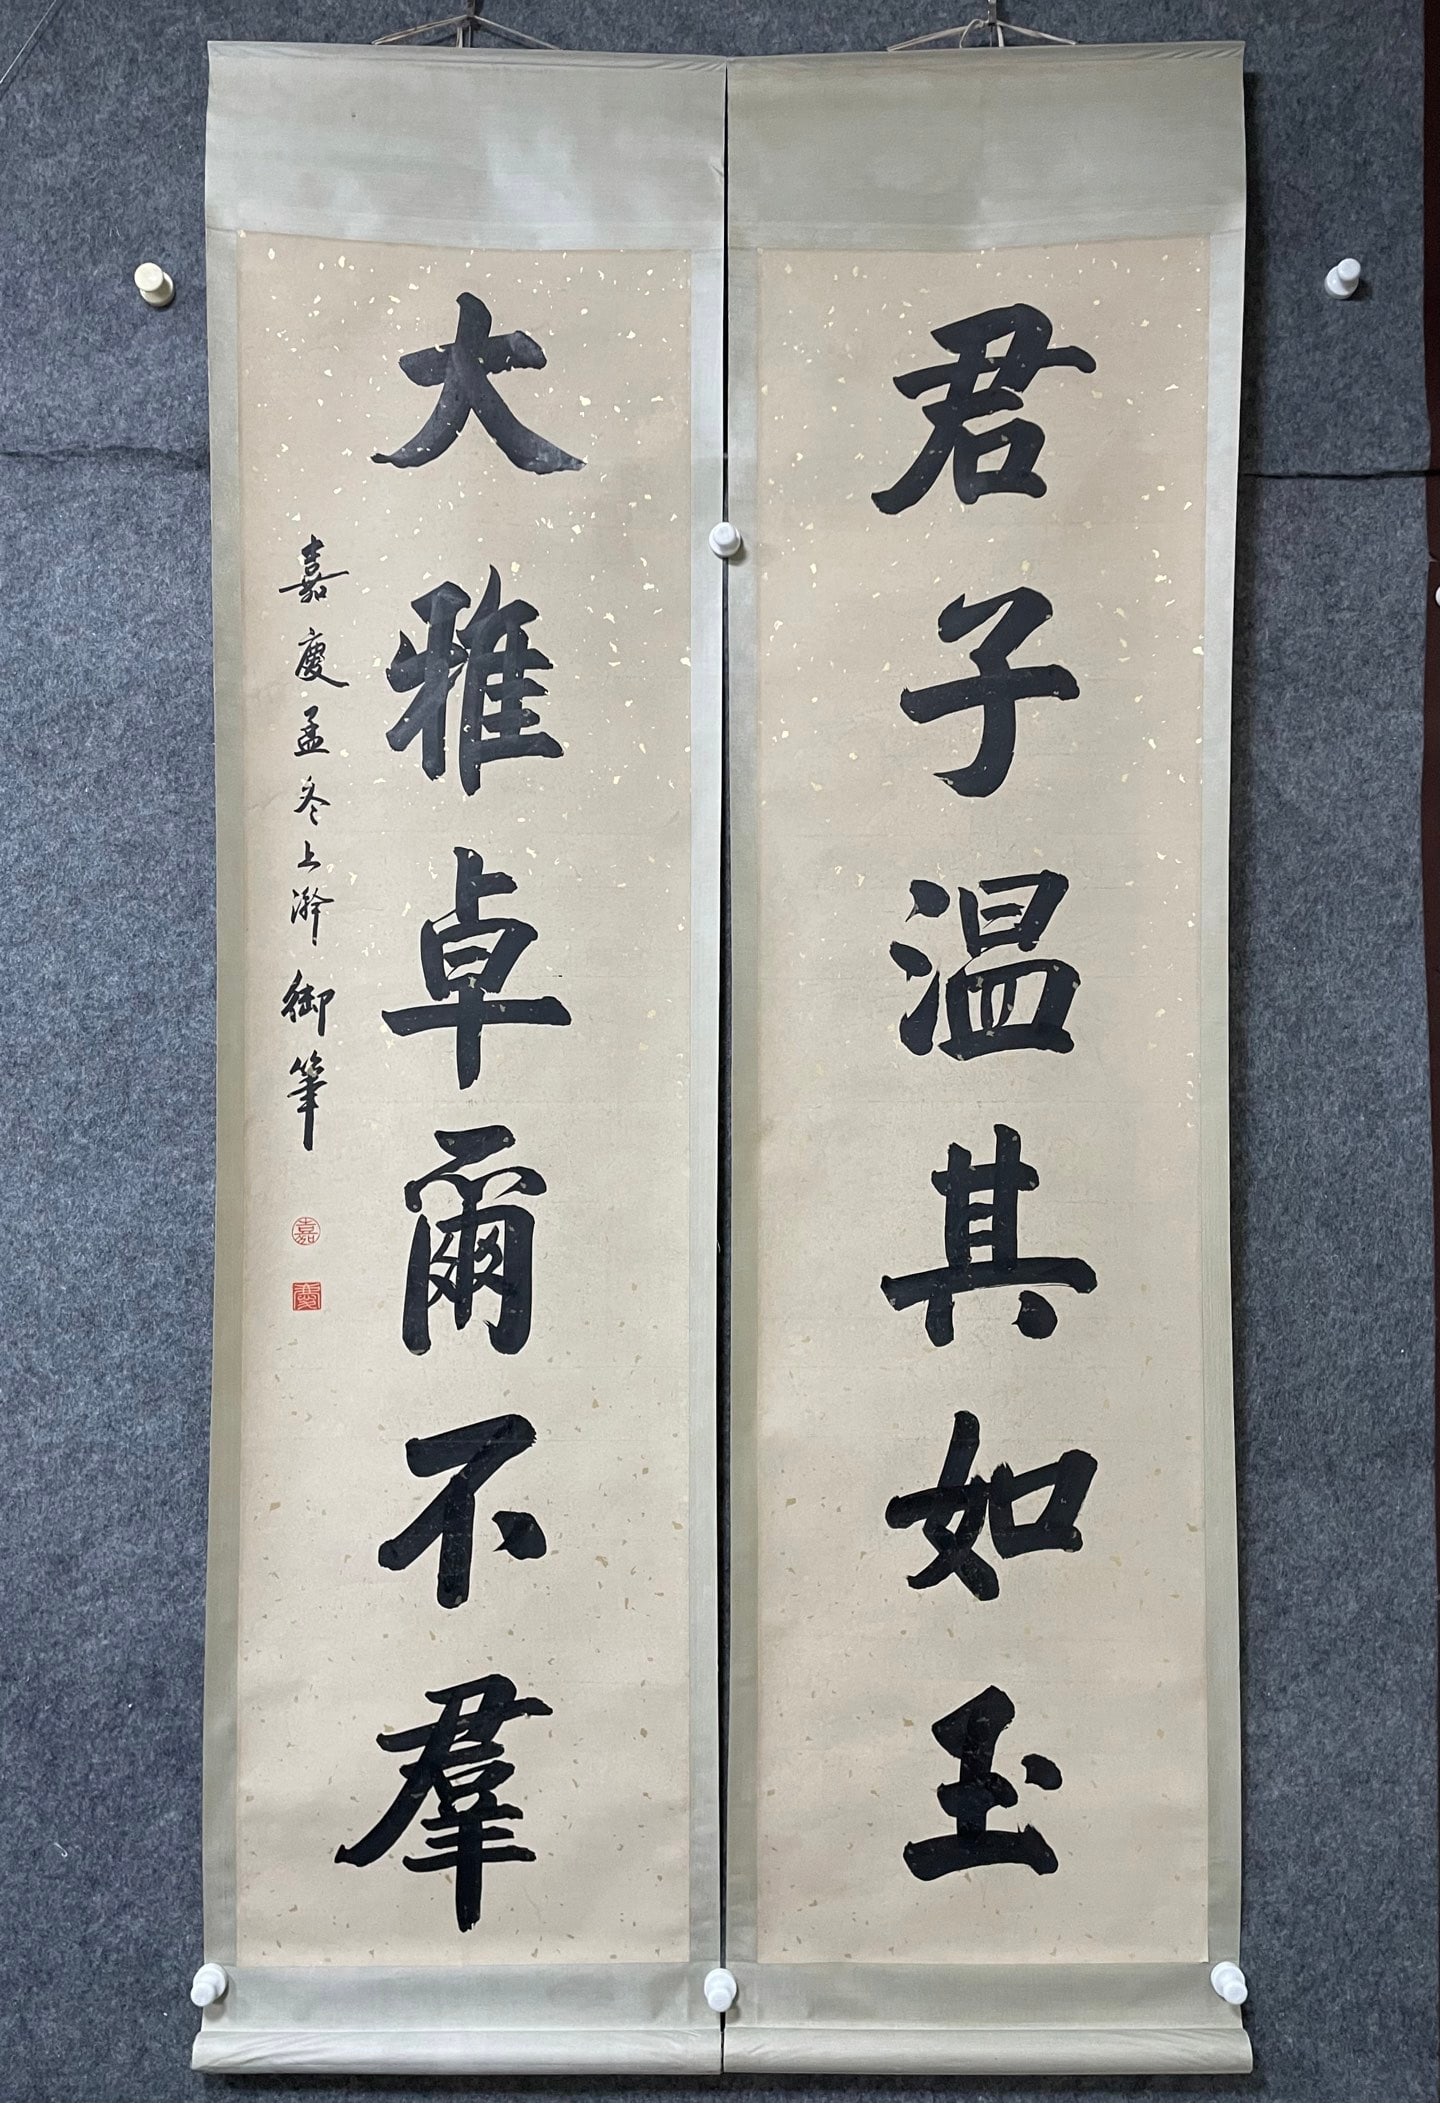 君子温其如玉
大雅卓爾不羣
嘉慶孟冬上澣御筆
嘉
慶